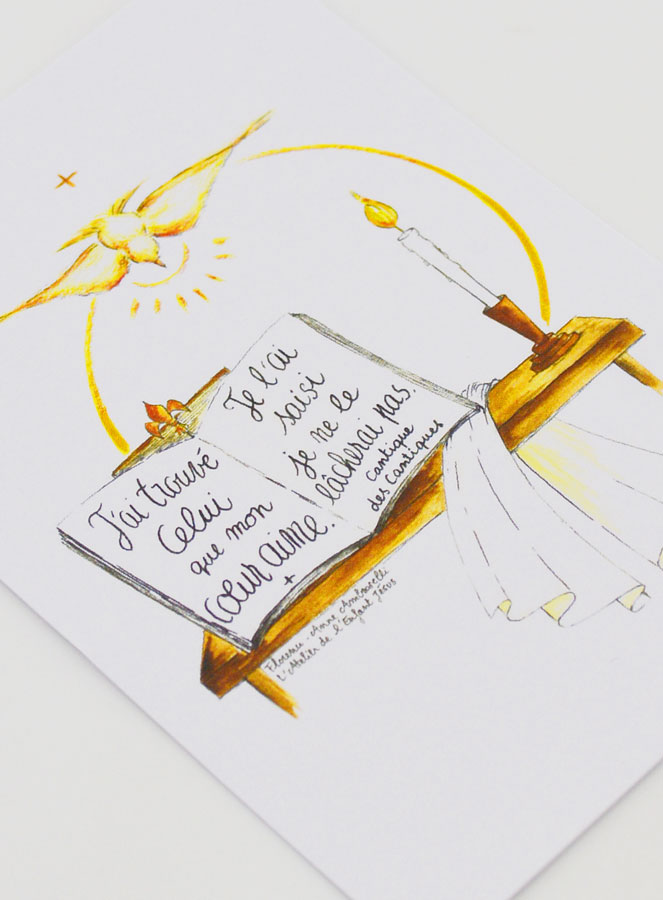 J'ai trouvé
Celui
que mon
cœur aime.
+
Je l'ai
saisi
je ne le
lâcherai pas.
cantique
des Cantiques
Anne
L'Atelier de l'Enfant Jésus